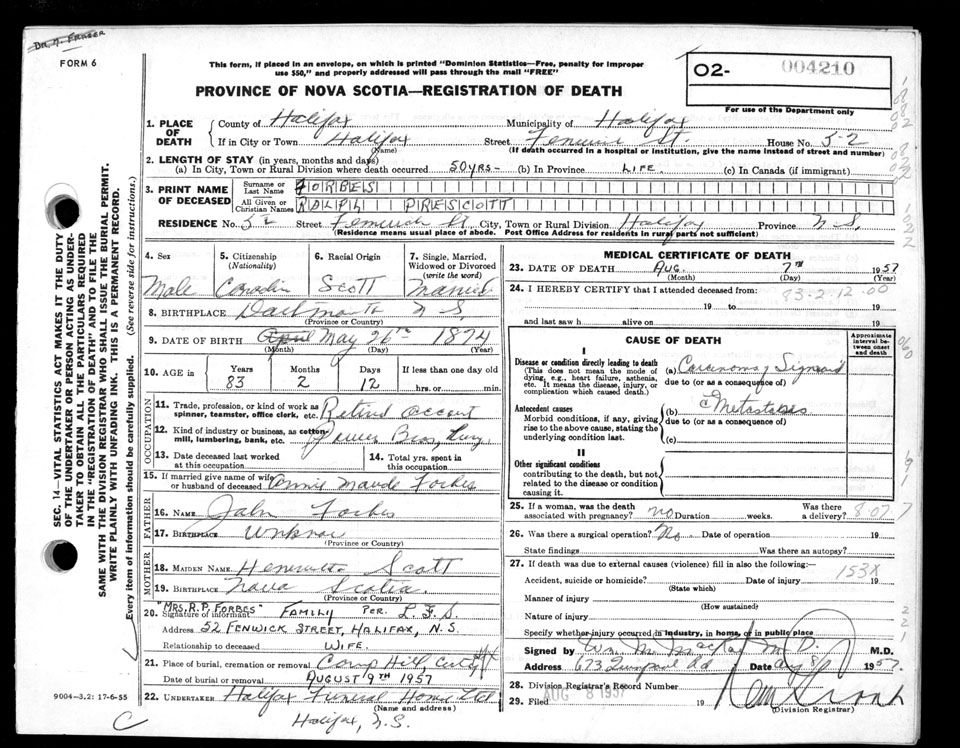 DR. A. FRASER
FORM 6
This form, if placed in an envelope, on which is printed "Dominion Statistics—Free, penalty for improper
use $50," and properly addressed will pass through the mail "FREE"
PROVINCE OF NOVA SCOTIA—REGISTRATION OF DEATH
O2- 004210
For use of the Department only
1. PLACE OF DEATH
County of Halifax Municipality of Halifax
If in City or Town Halifax Street Fenwick St. House No. 52
(Name) (If death occurred in a hospital or institution, give the name instead of street and number)
2. LENGTH OF STAY (in years, months and days)
(a) In City, Town or Rural Division where death occurred 50 YRS- (b) In Province LIFE. (c) In Canada (if immigrant)
3. PRINT NAME OF DECEASED
Surname or Last Name FORBES
All Given or Christian Names RALPH PRESCOTT
RESIDENCE No. 52 Street Fenwick St City, Town or Rural Division Halifax Province N S,
(Residence means usual place of abode. Post Office Address for residents in rural parts not sufficient)
4. Sex
Male
5. Citizenship (Nationality)
6. Racial Origin
Scott
7. Single, Married, Widowed or Divorced (write the word)
Married
8. BIRTHPLACE Dartmouth N S,
(Province or Country)
9. DATE OF BIRTH April May 26th 1874
(Month) (Day) (Year)
10. AGE in
Years Months Days If less than one day
83 2 12 hrs. or min.
OCCUPATION
11. Trade, profession, or kind of work as spinner, teamster, office clerk, etc. Retired
12. Kind of industry or business, as cotton-mill, lumbering, bank, etc. Bros,
13. Date deceased last worked at this occupation
14. Total yrs. spent in this occupation
15. If married give name of wife or husband of deceased Annie Maude Forbes
FATHER
16. NAME John Forbes
17. BIRTHPLACE Unknown
(Province or Country)
MOTHER
18. MAIDEN NAME Scott
19. BIRTHPLACE Nova Scotia
(Province or Country)
20. Signature of informant "MRS. R. P. FORBES" FAMILY PER. L.F.S.
Address 52 FENWICK STREET, HALIFAX, N.S.
Relationship to deceased WIFE.
21. Place of burial, cremation or removal Camp Hill,
Date of burial or removal AUGUST 9TH 1957
22. UNDERTAKER Halifax Funeral Home Ltd
(Name and address)
Halifax, N.S.
9004-3.2: 17-6-55
C
SEC. 14—VITAL STATISTICS ACT MAKES IT THE DUTY
OF THE UNDERTAKER OR PERSON ACTING AS UNDER-
TAKER TO OBTAIN ALL THE PARTICULARS REQUIRED
IN THE "REGISTRATION OF DEATH" AND TO FILE THE
SAME WITH THE DIVISION REGISTRAR WHO SHALL ISSUE THE BURIAL PERMIT.
WRITE PLAINLY WITH UNFADING INK. THIS IS A PERMANENT RECORD.
Every item of information should be carefully supplied. (See reverse side for instructions.)
MEDICAL CERTIFICATE OF DEATH
23. DATE OF DEATH Aug. 7TH 1957
(Month) (Day) (Year)
24. I HEREBY CERTIFY that I attended deceased from:
83-2-12.00
19 to 19
and last saw h alive on 19
CAUSE OF DEATH
Approximate interval between onset and death
I
Disease or condition directly leading to death
(This does not mean the mode of dying, e.g., heart failure, asthenia, etc. It means the disease, injury, or complication which caused death.)
(a) Carcinoma of Sigmoid
due to (or as a consequence of)
Antecedent causes
Morbid conditions, if any, giving rise to the above cause, stating the underlying condition last.
(b) c Metastases
due to (or as a consequence of)
(c)
II
Other significant conditions
contributing to the death, but not related to the disease or condition causing it.
25. If a woman, was the death associated with pregnancy? no Duration weeks. Was there a delivery?
8.07
26. Was there a surgical operation? No. Date of operation 19
State findings Was there an autopsy?
27. If death was due to external causes (violence) fill in also the following:
Accident, suicide or homicide? Date of injury 19
153X
(State which)
Manner of injury
(How sustained)
Nature of injury
Specify whether injury occurred in industry, in home, or in public place
Signed by Wm. M. MacKay M.D. M.D.
Address Date Aug 8/ 1957.
28. Division Registrar's Record Number
29. Filed AUG 8 1957 19
(Division Registrar)